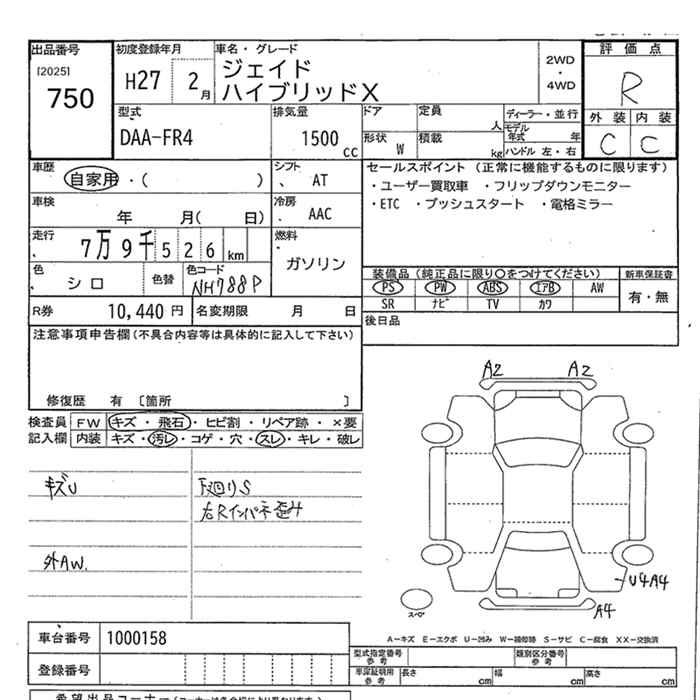 出品番号
[2025]
750
初度登録年月
H27 2月
車名・グレード
ジェイド
ハイブリッドX
2WD
・
4WD
評価点
R
外装 内装
C C
型式
DAA-FR4
排気量
1500 cc
ドア
定員
人
ディーラー・並行
形状 W
積載
kg
モデル年式 年
ハンドル 左・右
車歴
自家用・( )
シフト
AT
車検
年 月( 日)
冷房
AAC
走行
7万9千526km
燃料
ガソリン
色
シロ
色替
色コード
NH788P
R券 10,440円
名変期限 月 日
セールスポイント (正常に機能するものに限ります)
・ユーザー買取車 ・フリップダウンモニター
・ETC ・プッシュスタート ・電格ミラー
装備品(純正品に限り○をつけてください)
新車保証書
PS PW ABS エアB AW
有・無
SR ナビ TV カワ
後日品
注意事項申告欄(不具合内容等は具体的に記入して下さい)
修復歴 有 〔箇所 〕
検査員記入欄
FW キズ・飛石・ヒビ割・リペア跡・×要
内装 キズ・汚レ・コゲ・穴・スレ・キレ・破レ
キズU
下廻りS
右Rインパネ歪み
外AW.
A2 A2
U4A4
A4
スペア
A-キズ E-エクボ U-凹み W-補修跡 S-サビ C-腐食 XX-交換済
車台番号 1000158
登録番号
型式指定番号
参考
類別区分番号
参考
車庫証明用
参考
長さ cm
幅 cm
高さ cm
希望出品コーナー